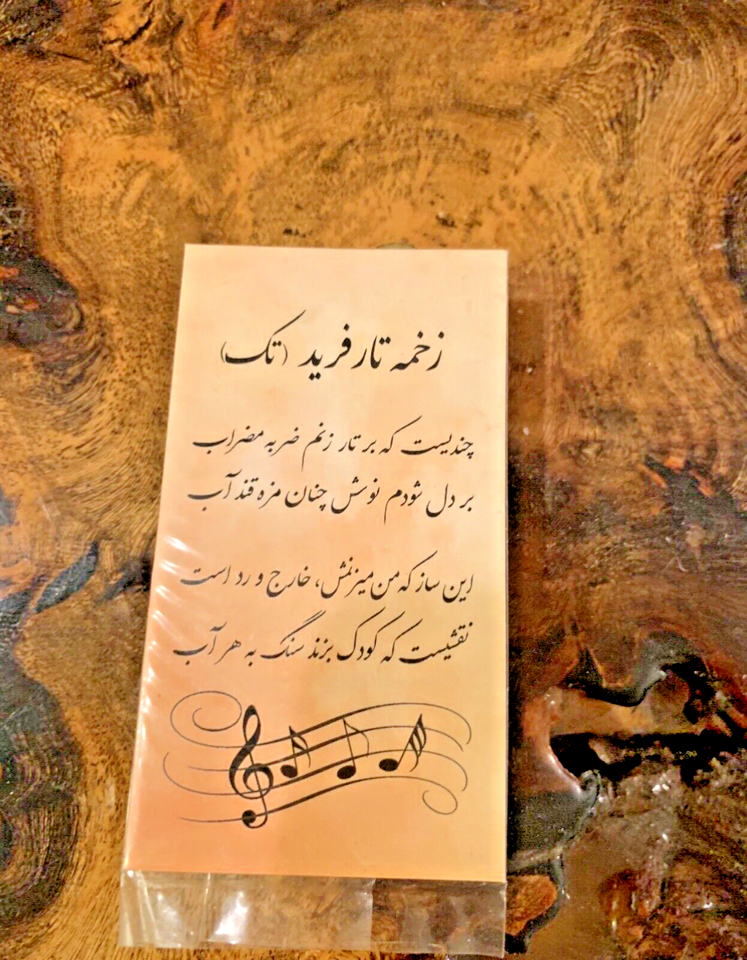 زخمه تار فرید (تک)
چندیست که بر تار زنم ضربه مضراب
بر دل شودم نوش چنان مزه قند آب
این ساز که من میزنمش، خارج و رد است
نقشیست که کودک بزند سنگ به هر آب